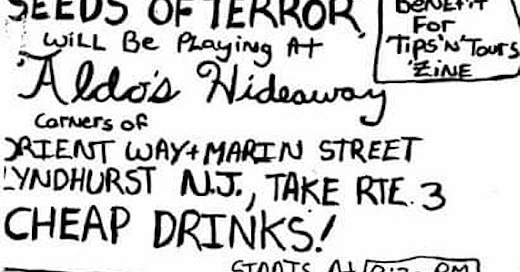 SEEDS OF TERROR
WiLL Be PLAYiNG At
Aldo's Hideaway
Corners of
ORIENT WAY+MARIN STREET
LYNDHURST N.J., TAKE RTE. 3
CHEAP DRINKS!
STARTS At PM
BENEFIT
For
Tips'N'Tours
'ZiNE